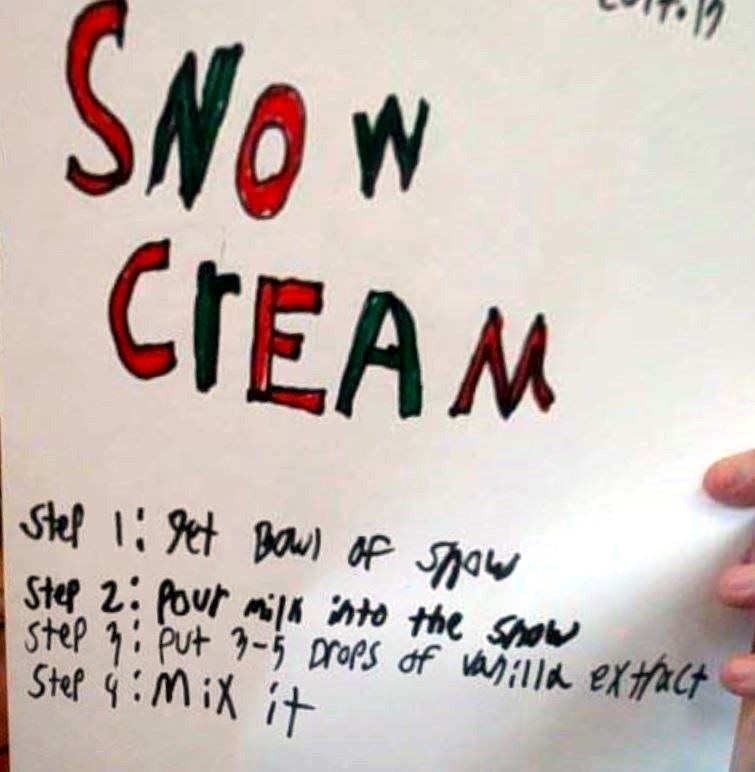 SNOW
CrEAM
Step 1: get Bowl of snow
Step 2: pour milk into the snow
Step 3: put 3-5 Drops of vanilla extract
Step 4: Mix it